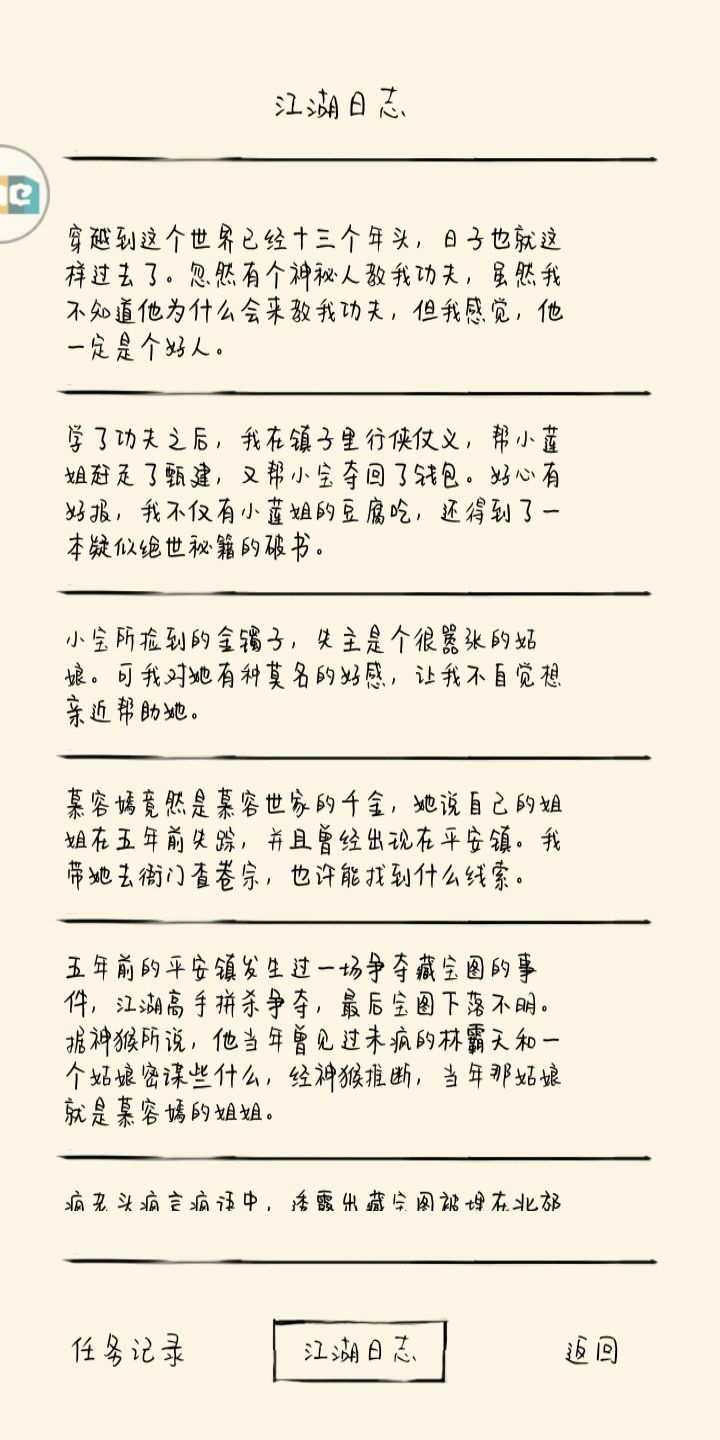 江湖日志
穿越到这个世界已经十三个年头，日子也就这
样过去了。忽然有个神秘人教我功夫，虽然我
不知道他为什么会来教我功夫，但我感觉，他
一定是个好人。
学了功夫之后，我在镇子里行侠仗义，帮小莲
姐赶走了甄建，又帮小宝夺回了钱包。好心有
好报，我不仅有小莲姐的豆腐吃，还得到了一
本疑似绝世秘籍的破书。
小宝所捡到的金镯子，失主是个很嚣张的姑
娘。可我对她有种莫名的好感，让我不自觉想
亲近帮助她。
慕容嫣竟然是慕容世家的千金，她说自己的姐
姐在五年前失踪，并且曾经出现在平安镇。我
带她去衙门查卷宗，也许能找到什么线索。
五年前的平安镇发生过一场争夺藏宝图的事
件，江湖高手拼杀争夺，最后宝图下落不明。
据神猴所说，他当年曾见过未疯的林霸天和一
个姑娘密谋些什么，经神猴推断，当年那姑娘
就是慕容嫣的姐姐。
疯老头疯言疯语中，透露出藏宝图被埋在北郊
任务记录
江湖日志
返回